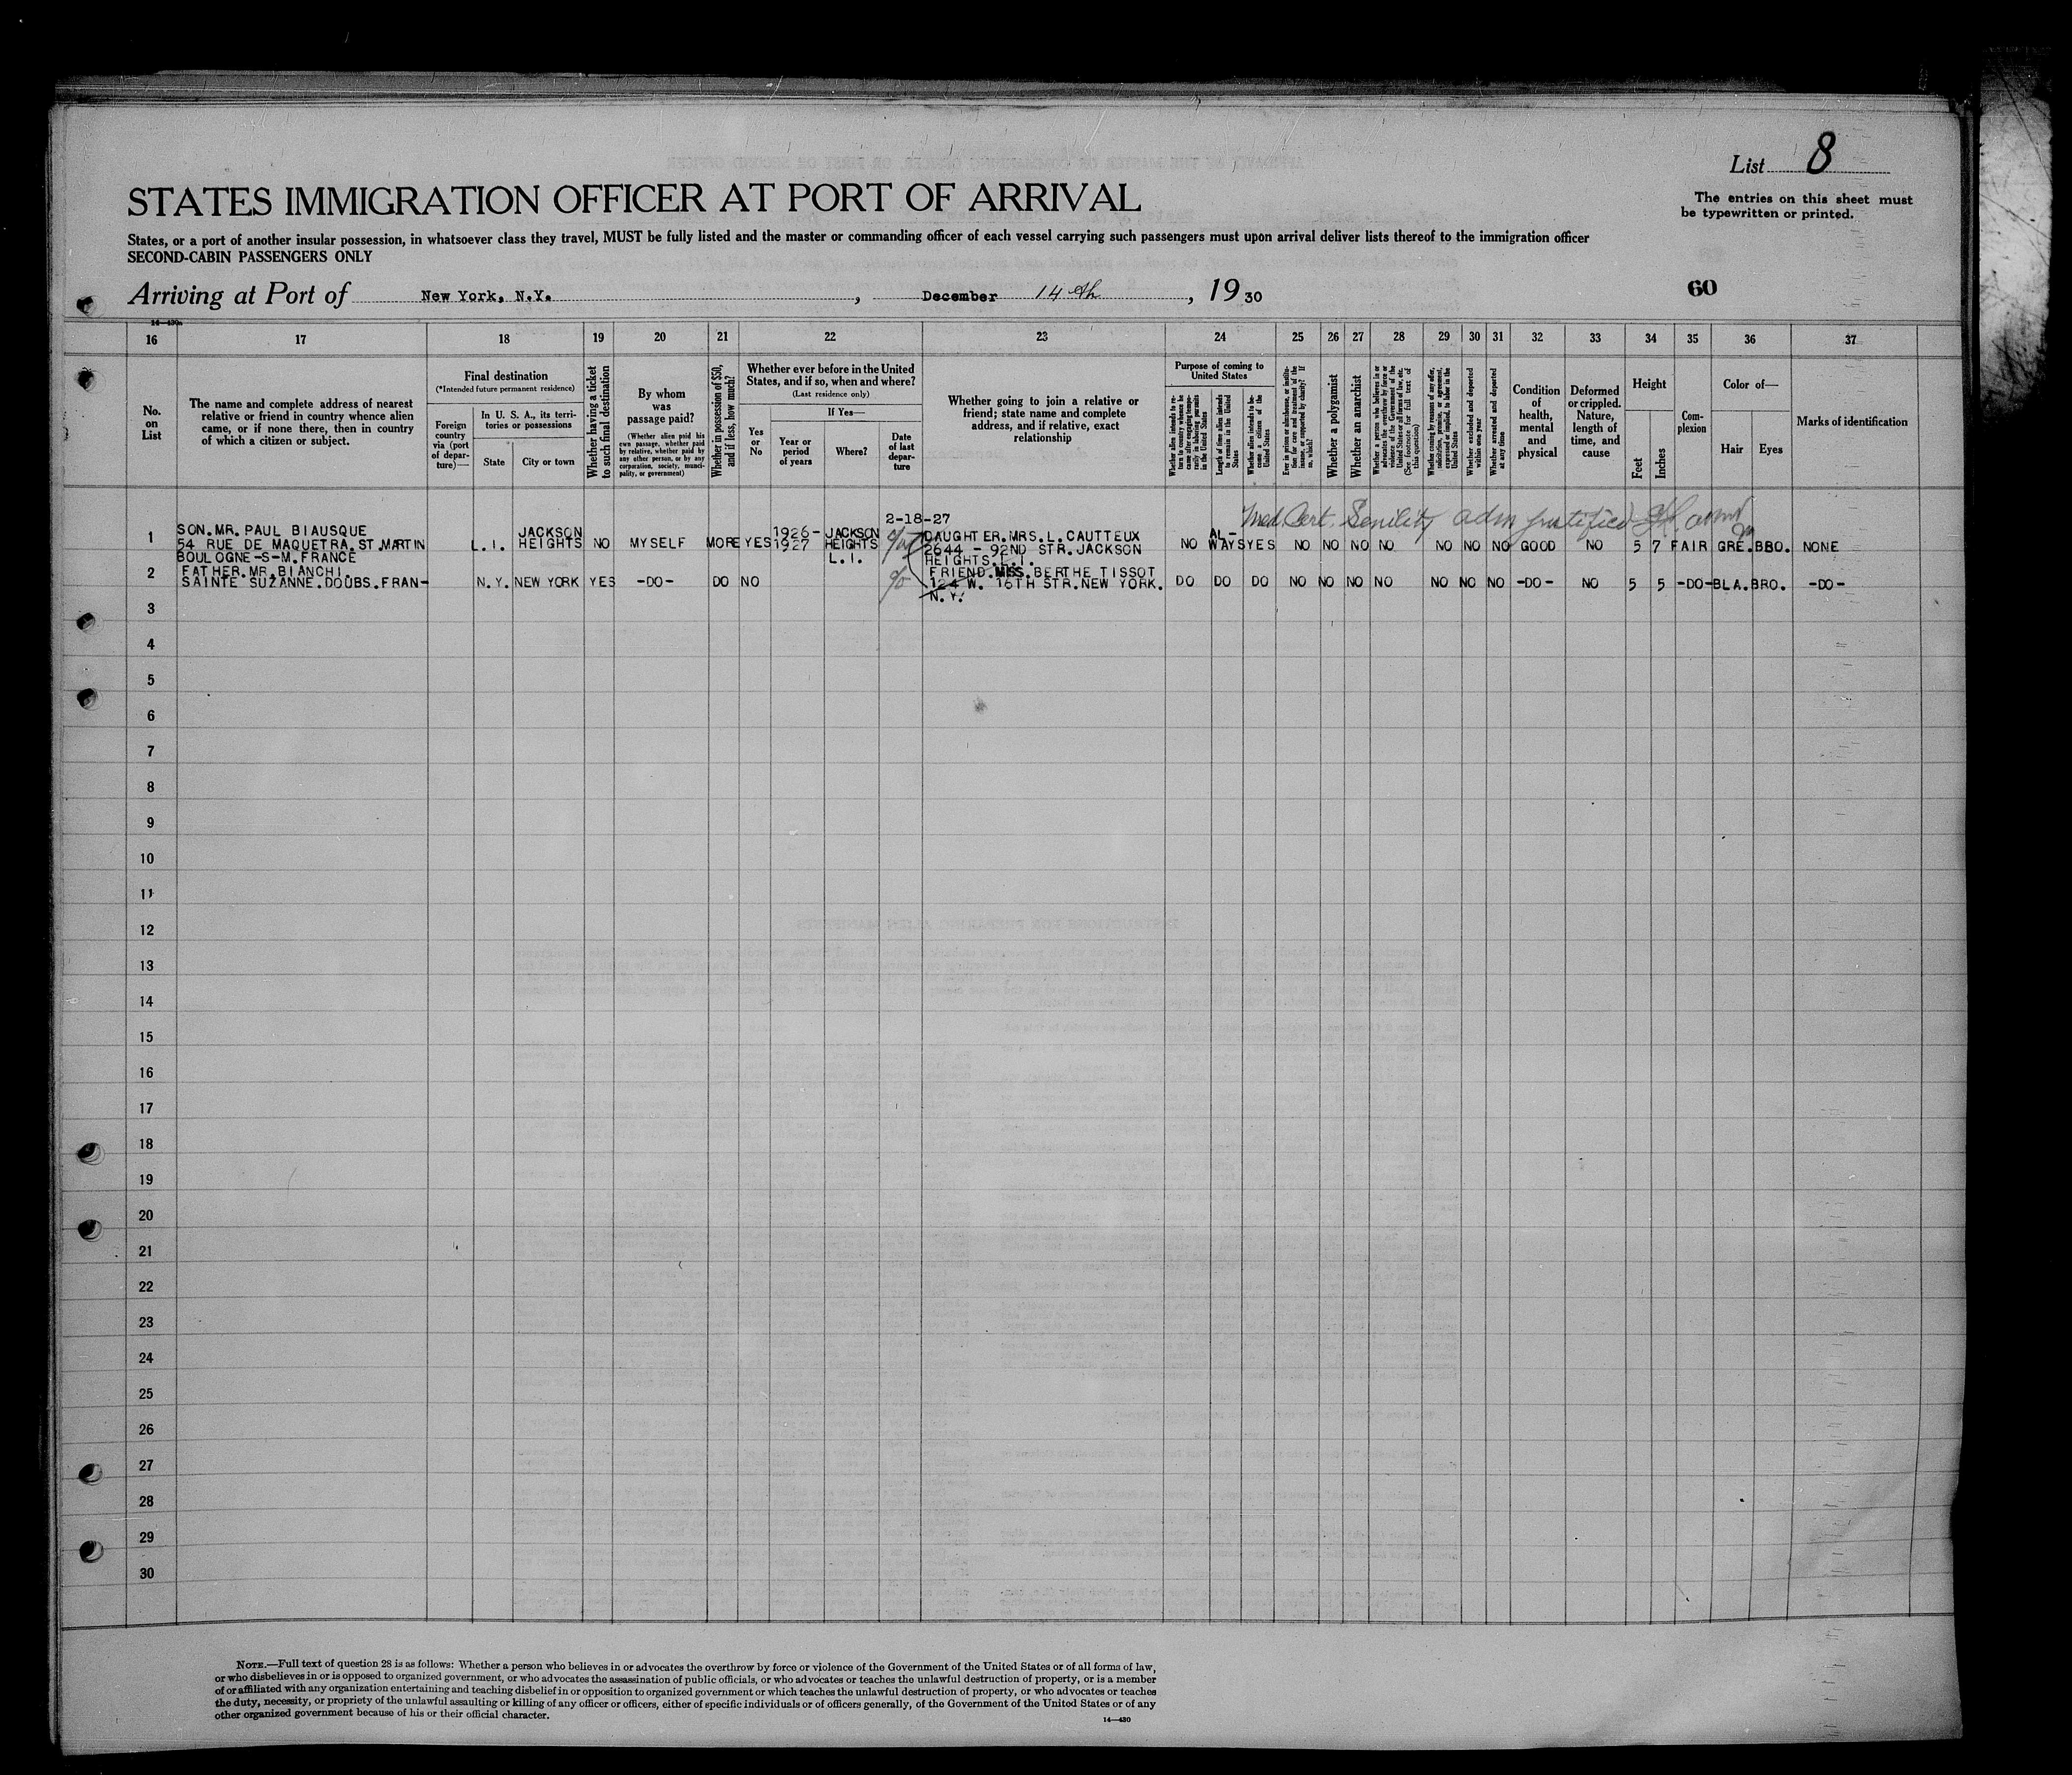 List 8
STATES IMMIGRATION OFFICER AT PORT OF ARRIVAL
The entries on this sheet must
be typewritten or printed.
States, or a port of another insular possession, in whatsoever class they travel, MUST be fully listed and the master or commanding officer of each vessel carrying such passengers must upon arrival deliver lists thereof to the immigration officer
SECOND-CABIN PASSENGERS ONLY
Arriving at Port of New York, N.Y., December 14th, 1930
60
16 17 18 19 20 21 22 23 24 25 26 27 28 29 30 31 32 33 34 35 36 37
No.
on
List
The name and complete address of nearest
relative or friend in country whence alien
came, or if none there, then in country
of which a citizen or subject.
Final destination
(*Intended future permanent residence)
Foreign
country
via (port
of depar-
ture)—
In U. S. A., its terri-
tories or possessions
State
City or town
Whether having a ticket
to such final destination
By whom
was
passage paid?
(Whether alien paid his
own passage, whether paid
by relative, whether paid by
any other person, or by any
corporation, society, munici-
pality, or government)
Whether in possession of $50,
and if less, how much?
Whether ever before in the United
States, and if so, when and where?
(Last residence only)
Yes
or
No
If Yes—
Year or
period
of years
Where?
Date
of last
depar-
ture
Whether going to join a relative or
friend; state name and complete
address, and if relative, exact
relationship
Purpose of coming to
United States
Whether alien intends to re-
turn to country whence he
came after engaging tempo-
rarily in laboring pursuits
in the United States
Length of time alien intends
to remain in the United
States
Whether alien intends to be-
come a citizen of the
United States
Ever in prison or almshouse, or institu-
tion for care and treatment of the
insane, or supported by charity? If
so, which?
Whether a polygamist
Whether an anarchist
Whether a person who believes in or
advocates the overthrow by force or
violence of the Government of the
United States or all forms of law, etc.
(See footnote for full text of
this question)
Whether coming by reason of any offer,
solicitation, promise, or agreement,
expressed or implied, to labor in the
United States
Whether excluded and deported
within one year
Whether arrested and deported
at any time
Condition
of
health,
mental
and
physical
Deformed
or crippled.
Nature,
length of
time, and
cause
Height
Feet
Inches
Com-
plexion
Color of—
Hair
Eyes
Marks of identification
Med. Cert. Senility adm
2-18-27
1
SON.MR.PAUL BIAUSQUE
54 RUE DE MAQUETRA.ST.MARTIN
BOULOGNE-S-M.FRANCE
L.I.
JACKSON
HEIGHTS
NO MYSELF MORE YES
1926-
1927
JACKSON
HEIGHTS
L.I.
DAUGHTER.MRS.L.CAUTTEUX
2644 - 92ND STR.JACKSON
HEIGHTS.L.I.
NO
AL-
WAYS
YES NO NO NO NO NO NO NO GOOD NO 5 7 FAIR GRE. BBO. NONE
2
FATHER.MR.BIANCHI.
SAINTE SUZANNE.DOUBS.FRAN-
N.Y. NEW YORK YES -DO- DO NO
FRIEND.MISS.BERTHE TISSOT
124 W. 16TH STR.NEW YORK.
N.Y.
DO DO DO NO NO NO NO NO NO NO -DO- NO 5 5 -DO- BLA. BRO. -DO-
3
4
5
6
7
8
9
10
11
12
13
14
15
16
17
18
19
20
21
22
23
24
25
26
27
28
29
30
NOTE.—Full text of question 28 is as follows: Whether a person who believes in or advocates the overthrow by force or violence of the Government of the United States or of all forms of law,
or who disbelieves in or is opposed to organized government, or who advocates the assassination of public officials, or who advocates or teaches the unlawful destruction of property, or is a member
of or affiliated with any organization entertaining and teaching disbelief in or opposition to organized government or which teaches the unlawful destruction of property, or who advocates or teaches
the duty, necessity, or propriety of the unlawful assaulting or killing of any officer or officers, either of specific individuals or of officers generally, of the Government of the United States or of any
other organized government because of his or their official character.
14—430